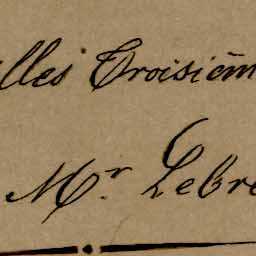 lles Troisièm
Mr Lebre